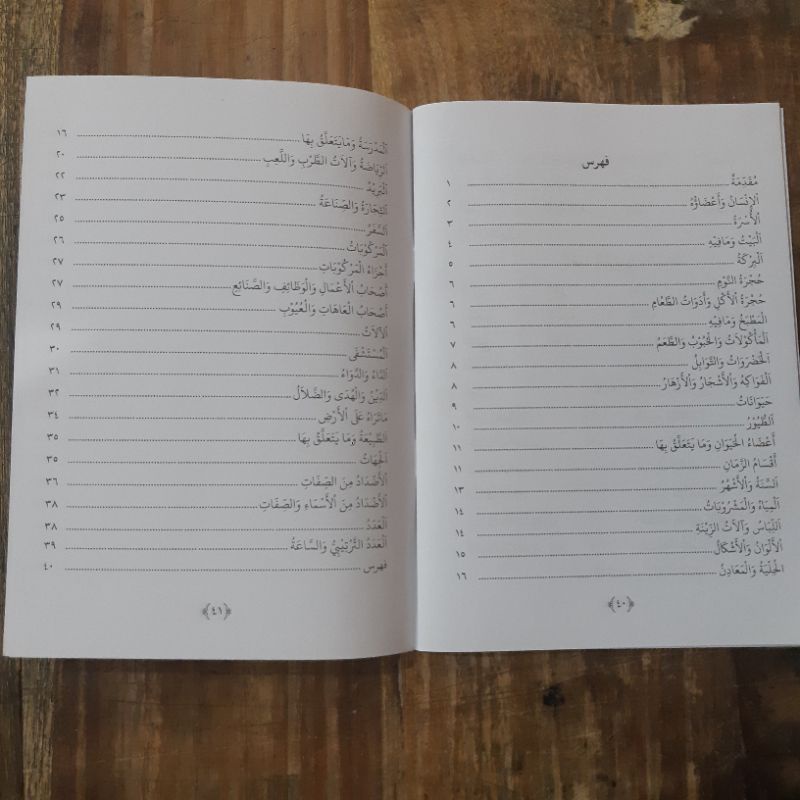 فهرس
مُقَدِّمَةٌ ١
اَلْإِنْسَانُ وَأَعْضَاؤُهُ ٢
اَلْأُسْرَةُ ٣
اَلْبَيْتُ وَمَافِيْهِ ٤
اَلْبِرْكَةُ ٥
حُجْرَةُ النَّوْمِ ٦
حُجْرَةُ الْأَكْلِ وَأَدَوَاتُ الطَّعَامِ ٦
اَلْمَطْبَخُ وَمَافِيْهِ ٦
اَلْمَأْكُوْلَاتُ وَالْحُبُوْبُ وَالطَّعْمُ ٧
اَلْخُضْرَوَاتُ وَالتَّوَابِلُ ٨
اَلْفَوَاكِهُ وَالْأَشْجَارُ وَالْأَزْهَارُ ٨
حَيَوَانَاتٌ ٩
اَلطُّيُوْرُ ١٠
أَعْضَاءُ الْحَيَوَانِ وَمَا يَتَعَلَّقُ بِهَا ١١
أَقْسَامُ الزَّمَانِ ١١
اَلسَّنَةُ وَالْأَشْهُرُ ١٣
اَلْمِيَاهُ وَالْمَشْرُوْبَاتُ ١٤
اَللِّبَاسُ وَآلَاتُ الزِّيْنَةِ ١٤
اَلْأَلْوَانُ وَالْأَشْكَالُ ١٥
اَلْحِلْيَةُ وَالْمَعَادِنُ ١٦
﴿٤٠﴾
اَلْمَدْرَسَةُ وَمَايَتَعَلَّقُ بِهَا ١٦
اَلرِّيَاضَةُ وَآلَاتُ الطَّرَبِ وَاللَّعِبِ ٢٠
اَلْبَرِيْدُ ٢٢
اَلتِّجَارَةُ وَالصِّنَاعَةُ ٢٣
اَلسَّفَرُ ٢٥
اَلْمَرْكُوْبَاتُ ٢٦
أَجْزَاءُ الْمَرْكُوْبَاتِ ٢٧
أَصْحَابُ الْأَعْمَالِ وَالْوَظَائِفِ وَالصَّنَائِعِ ٢٧
أَصْحَابُ الْعَاهَاتِ وَالْعُيُوْبِ ٢٩
اَلْآلَاتُ ٢٩
اَلْمُسْتَشْفَى ٣٠
اَلدَّاءُ وَالدَّوَاءُ ٣١
اَلدِّيْنُ وَالْهُدَى وَالضَّلَالُ ٣٢
مَاتَرَاهُ عَلَى الْأَرْضِ ٣٤
اَلطَّبِيْعَةُ وَمَا يَتَعَلَّقُ بِهَا ٣٥
اَلْجِهَاتُ ٣٥
اَلْأَضْدَادُ مِنَ الصِّفَاتِ ٣٦
اَلْأَضْدَادُ مِنَ الْأَسْمَاءِ وَالصِّفَاتِ ٣٨
اَلْعَدَدُ ٣٨
اَلْعَدَدُ التَّرْتِيْبِيُّ وَالسَّاعَةُ ٣٩
فهرس ٤٠
﴿٤١﴾